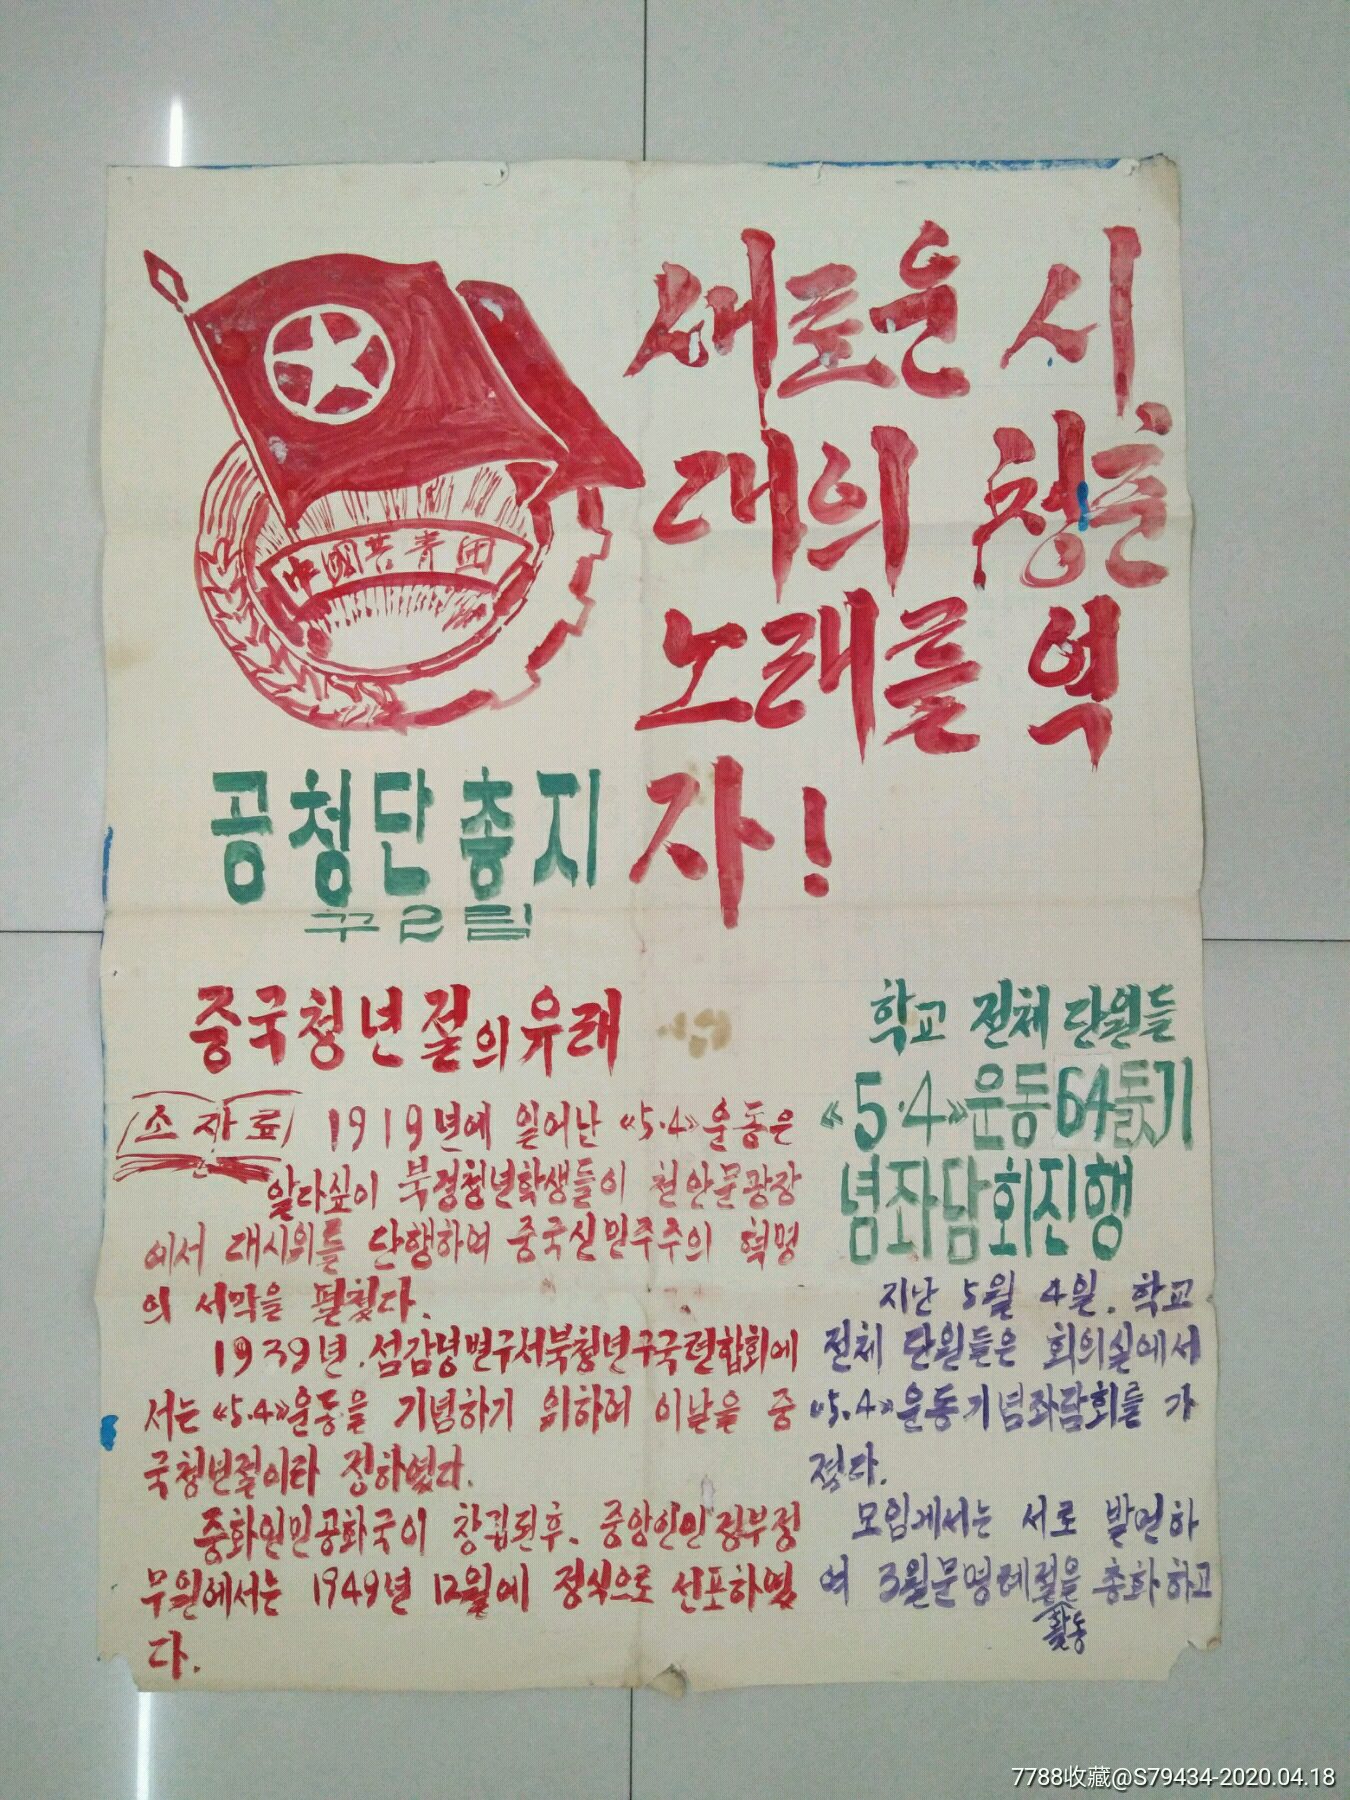 새로운 시
대의 청춘
노래를 엮
자!
中國共青团
공청단총지
꾸림
중국청년절의 유래
소자료
1919년에 일어난 《5.4》운동은
알다싶이 북경청년학생들이 천안문광장
에서 대시위를 단행하여 중국신민주주의 혁명
의 서막을 펼쳤다.
1939년, 섬감녕변구서북청년구국련합회에
서는 《5.4》운동을 기념하기 위하여 이날을 중
국청년절이라 정하였다.
중화인민공화국이 창립된후, 중앙인민정부정
무원에서는 1949년 12월에 정식으로 선포하였
다.
학교 전체 단원들
《5.4》운동64돐기
념좌담회진행
지난 5월 4일, 학교
전체 단원들은 회의실에서
《5.4》운동기념좌담회를 가
졌다.
모임에서는 서로 발언하
여 3월문명례절활동을 총화하고
7788收藏@S79434-2020.04.18